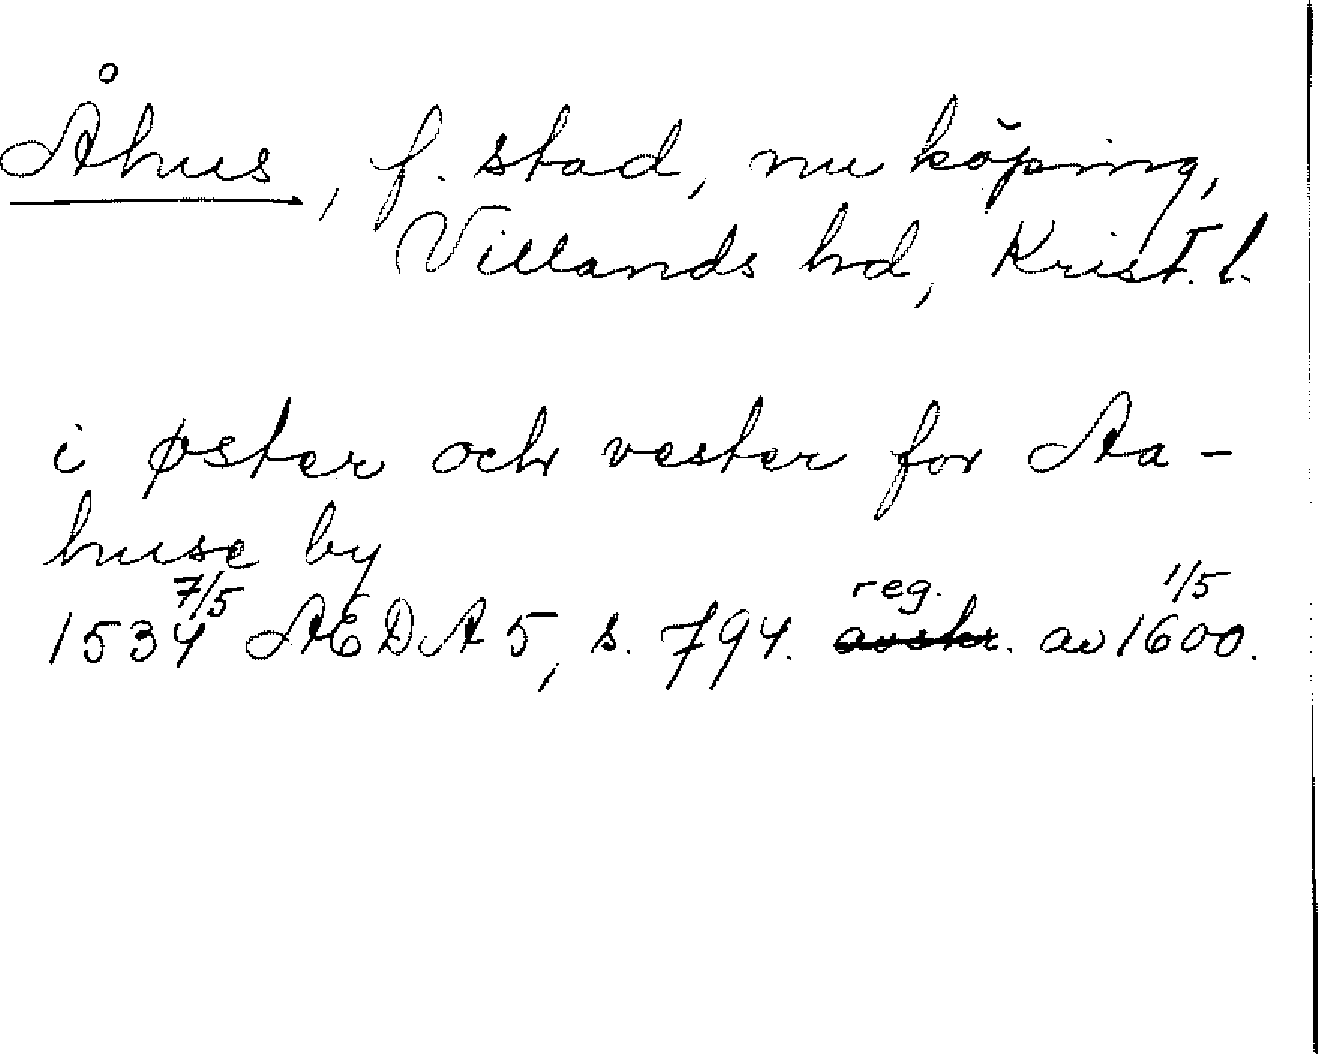 Åhus, f. stad, nu köping,
Villands hd, Krist. l.
i øster och vester for Aa-
huse by
7/5 reg. 1/5
1534 AEDA 5, s. 794. avskr. av 1600.